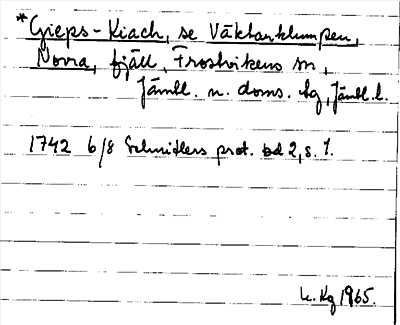 *Gieps-Kiach, se Väktarklumpen,
Norra, fjäll, Frostvikens sn,
Jämtl. n. doms. hg, Jämtl. l.
1742 6/8 Schnitlers prot. bd 2, s. 1.
L. Hg 1965.